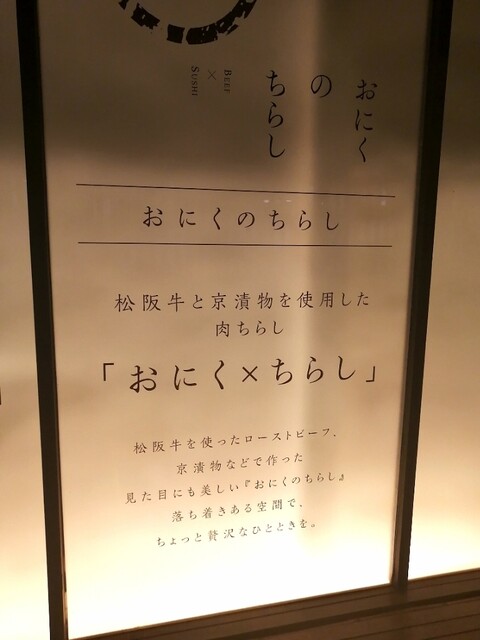 おにく
の
ちらし
BEEF
×
SUSHI
おにくのちらし
松阪牛と京漬物を使用した
肉ちらし
「おにく×ちらし」
松阪牛を使ったローストビーフ、
京漬物などで作った
見た目にも美しい『おにくのちらし』
落ち着きある空間で、
ちょっと贅沢なひとときを。